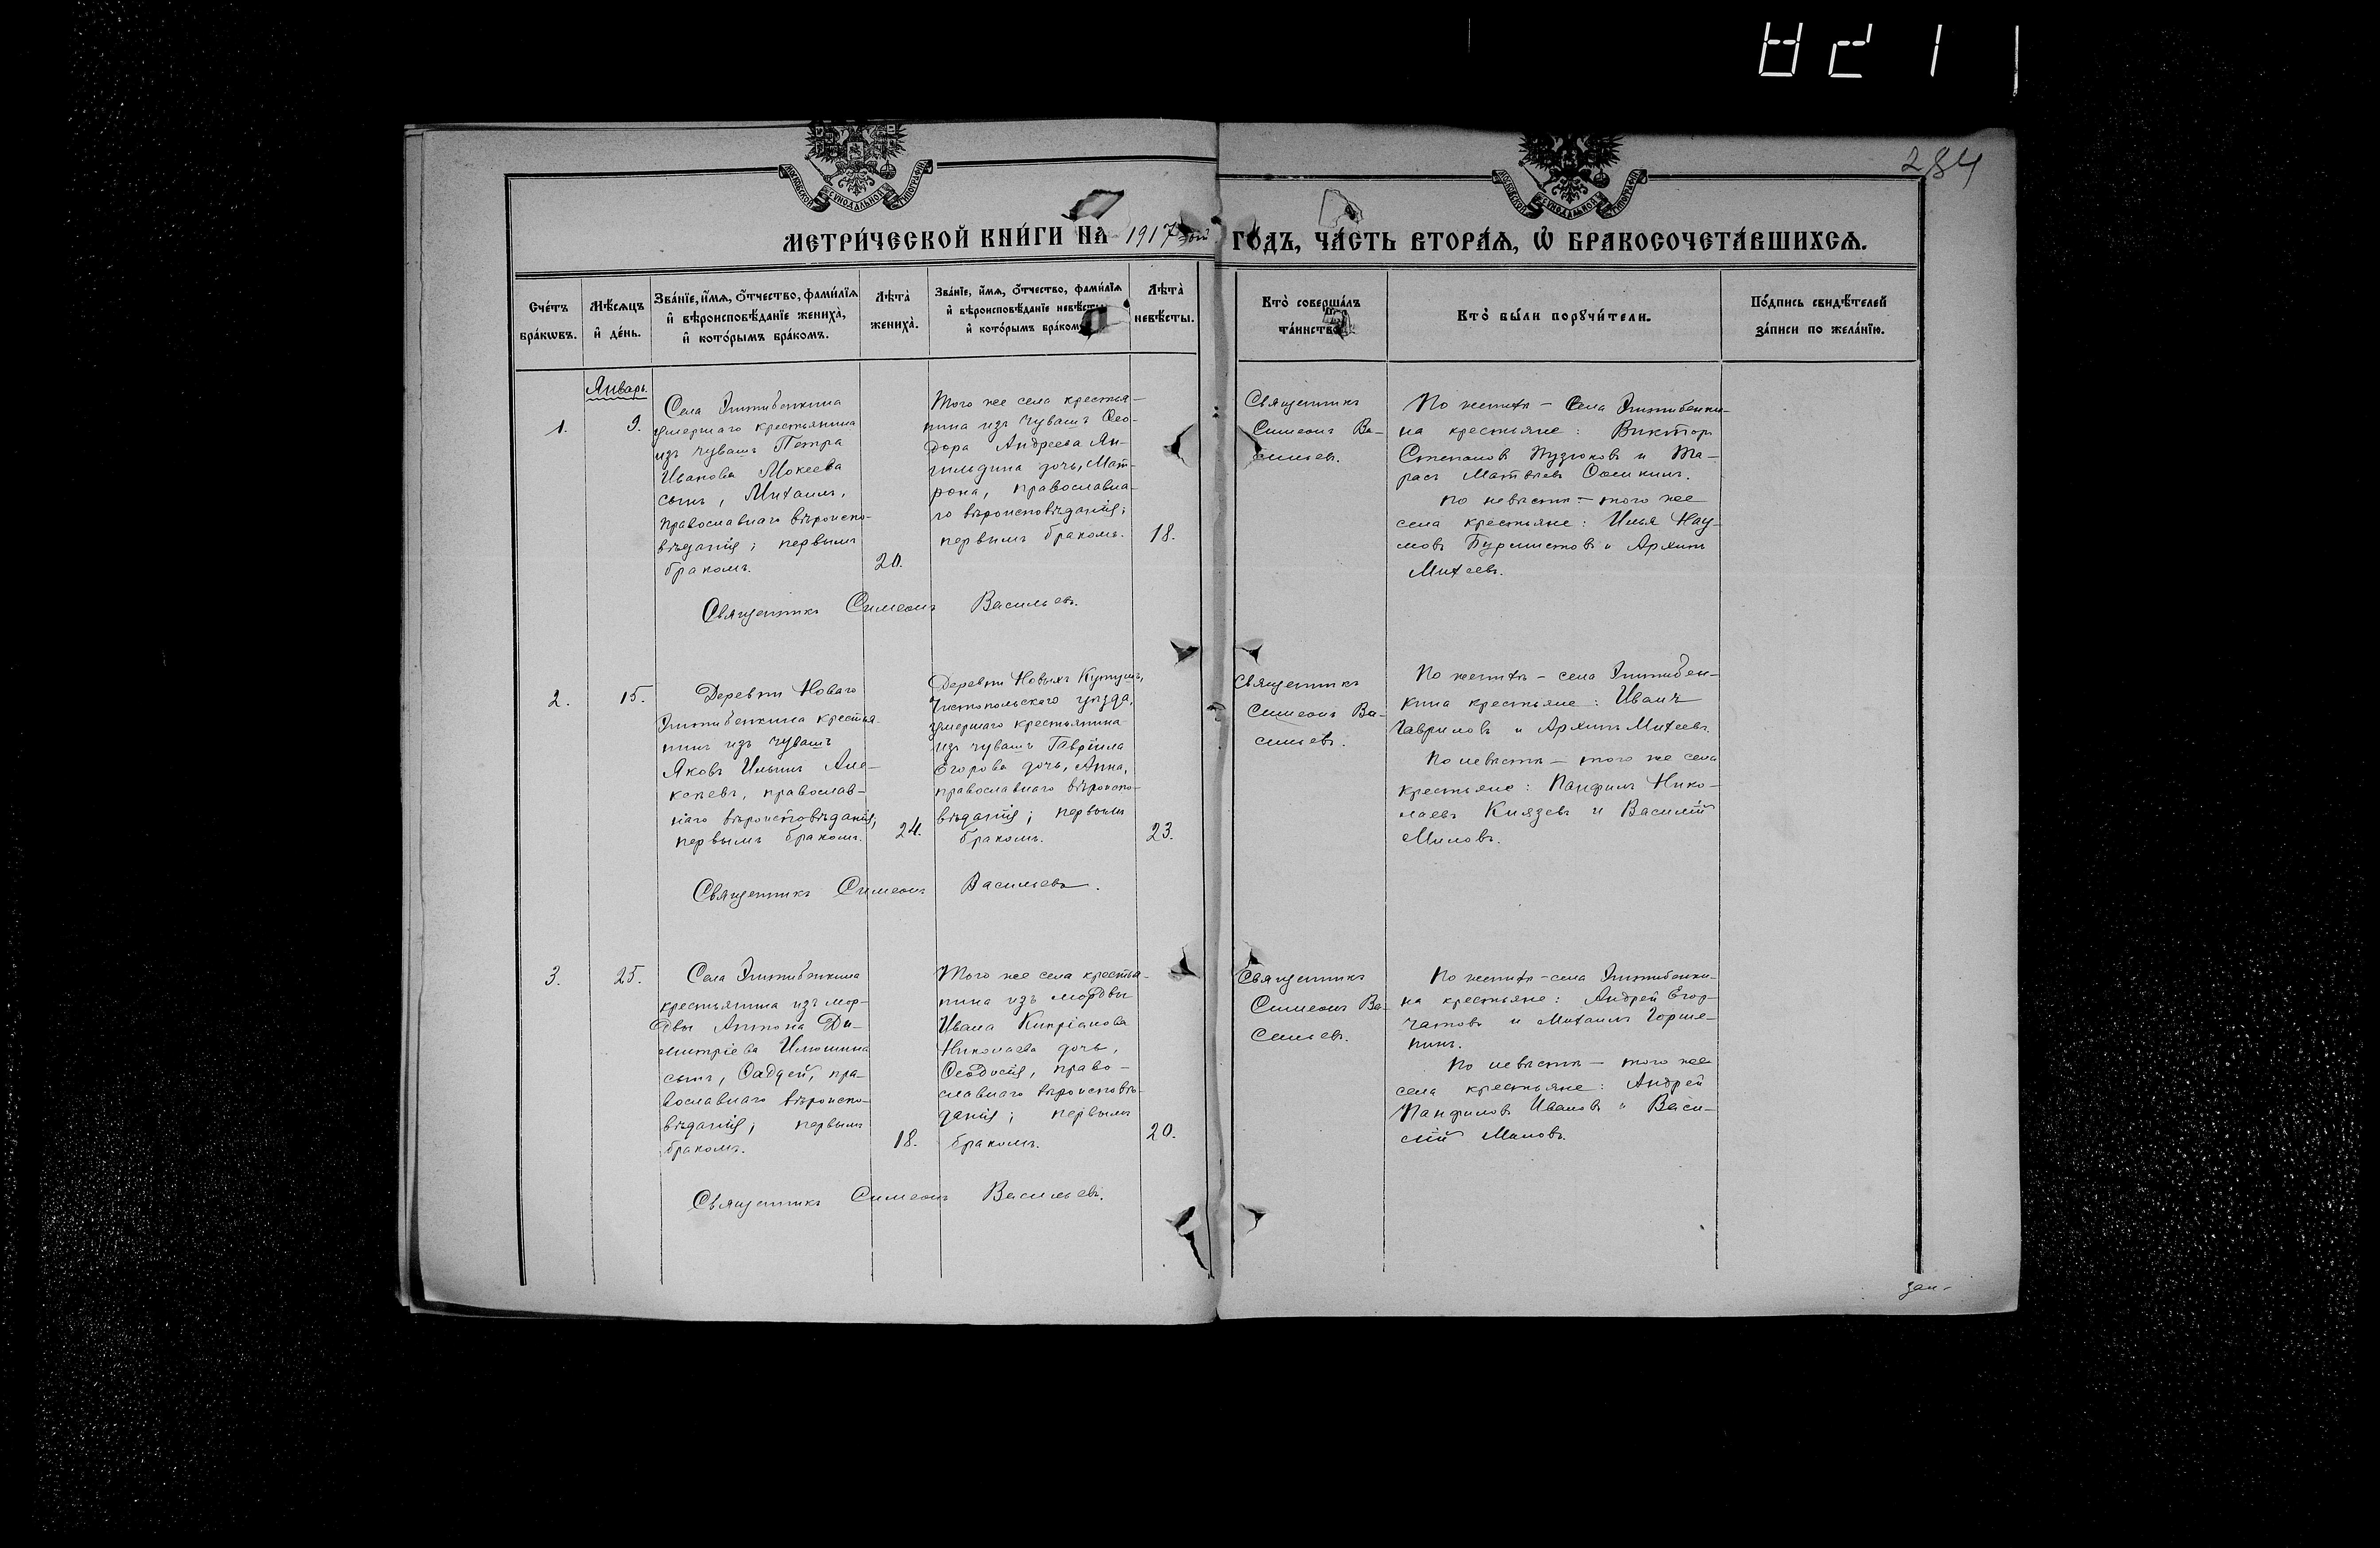 284
МОСКОВСКОЙ СѴНОДАЛЬНОЙ ТИПОГРАФІИ
МОСКОВСКОЙ СѴНОДАЛЬНОЙ ТИПОГРАФІИ
МЕТРИ́ЧЕСКОЙ КНИ́ГИ НА 1917 ГО́ДЪ, ЧА́СТЬ ВТОРА́Я, Ѡ҆ БРАКОСОЧЕТА́ВШИХСЯ.
Сче́тъ бра́кѡвъ.
Мѣ́сяцъ и҆ де́нь.
Зва́нїе, и҆́мя, о҆́тчество, фами́лїя
и҆ вѣроисповѣ́данїе жениха̀,
и҆ кото́рымъ бра́комъ.
Лѣта̀ жениха̀.
Зва́нїе, и҆́мя, о҆́тчество, фами́лїя
и҆ вѣроисповѣ́данїе невѣ́сты
и҆ кото́рымъ бра́комъ
Лѣта̀ невѣ́сты.
Кто̀ соверша́лъ
та́инство
Кто̀ бы́ли порꙋчи́тели.
По́дпись свидѣ́телей
за́писи по жела́нїю.
Январь.
1.
9.
Села Элтибенкина
умершаго крестьянина
изъ чувашъ Петра
Иванова Мокеева
сынъ, Михаилъ,
православнаго вѣроиспо-
вѣданія; первымъ
бракомъ.
20.
Того же села крестья-
нина изъ чувашъ Ѳео-
дора Андреева Ян-
гильдина дочь, Мат-
рона, православна-
го вѣроисповѣданія;
первымъ бракомъ.
18.
Священникъ
Симеонъ Ва-
сильевъ.
По женихѣ – Села Элтибенки-
на крестьяне: Викторъ
Степановъ Пузюковъ и Та-
расъ Матвѣевъ
по невѣстѣ – того же
села крестьяне: Илья Нау-
мовъ Бурмистовъ и Архипъ
Михеевъ.
Священникъ Симеонъ Васильевъ.
2.
15.
Деревни Новаго
Элтибенкина крестья-
нинъ изъ чувашъ
Яковъ Ильинъ Але-
ксѣевъ, православ-
наго вѣроисповѣданія;
первымъ бракомъ.
24.
Деревни Новыхъ Кутушъ,
Чистопольскаго уѣзда,
умершаго крестьянина
изъ чувашъ Гавріила
Егорова дочь, Анна,
православнаго вѣроиспо-
вѣданія; первымъ
бракомъ.
23.
Священникъ
Симеонъ Ва-
сильевъ.
По женихѣ – села Элтибен-
кина крестьяне: Иванъ
Гавриловъ и Архипъ Михеевъ.
По невѣстѣ – того же села
крестьяне: Панфилъ Нико-
лаевъ Князевъ и Василій
Миловъ.
Священникъ Симеонъ Васильевъ.
3.
25.
Села Элтибенкина
крестьянина изъ мор-
двы Антона Ди-
митріева Илюшина
сынъ, Ѳаддей, пра-
вославнаго вѣроиспо-
вѣданія; первымъ
бракомъ.
18.
Того же села крестья-
нина изъ мордвы
Ивана Кипріанова
Николаева дочь,
Ѳеодосія, право-
славнаго вѣроисповѣ-
данія; первымъ
бракомъ.
20.
Священникъ
Симеонъ Ва-
сильевъ.
По женихѣ – села Элтибенки-
на крестьяне: Андрей Егор-
чатовъ и Михаилъ Горше-
нинъ.
По невѣстѣ – того же
села крестьяне: Андрей
Панфиловъ Ивановъ и Васи-
лій Миловъ.
Священникъ Симеонъ Васильевъ.